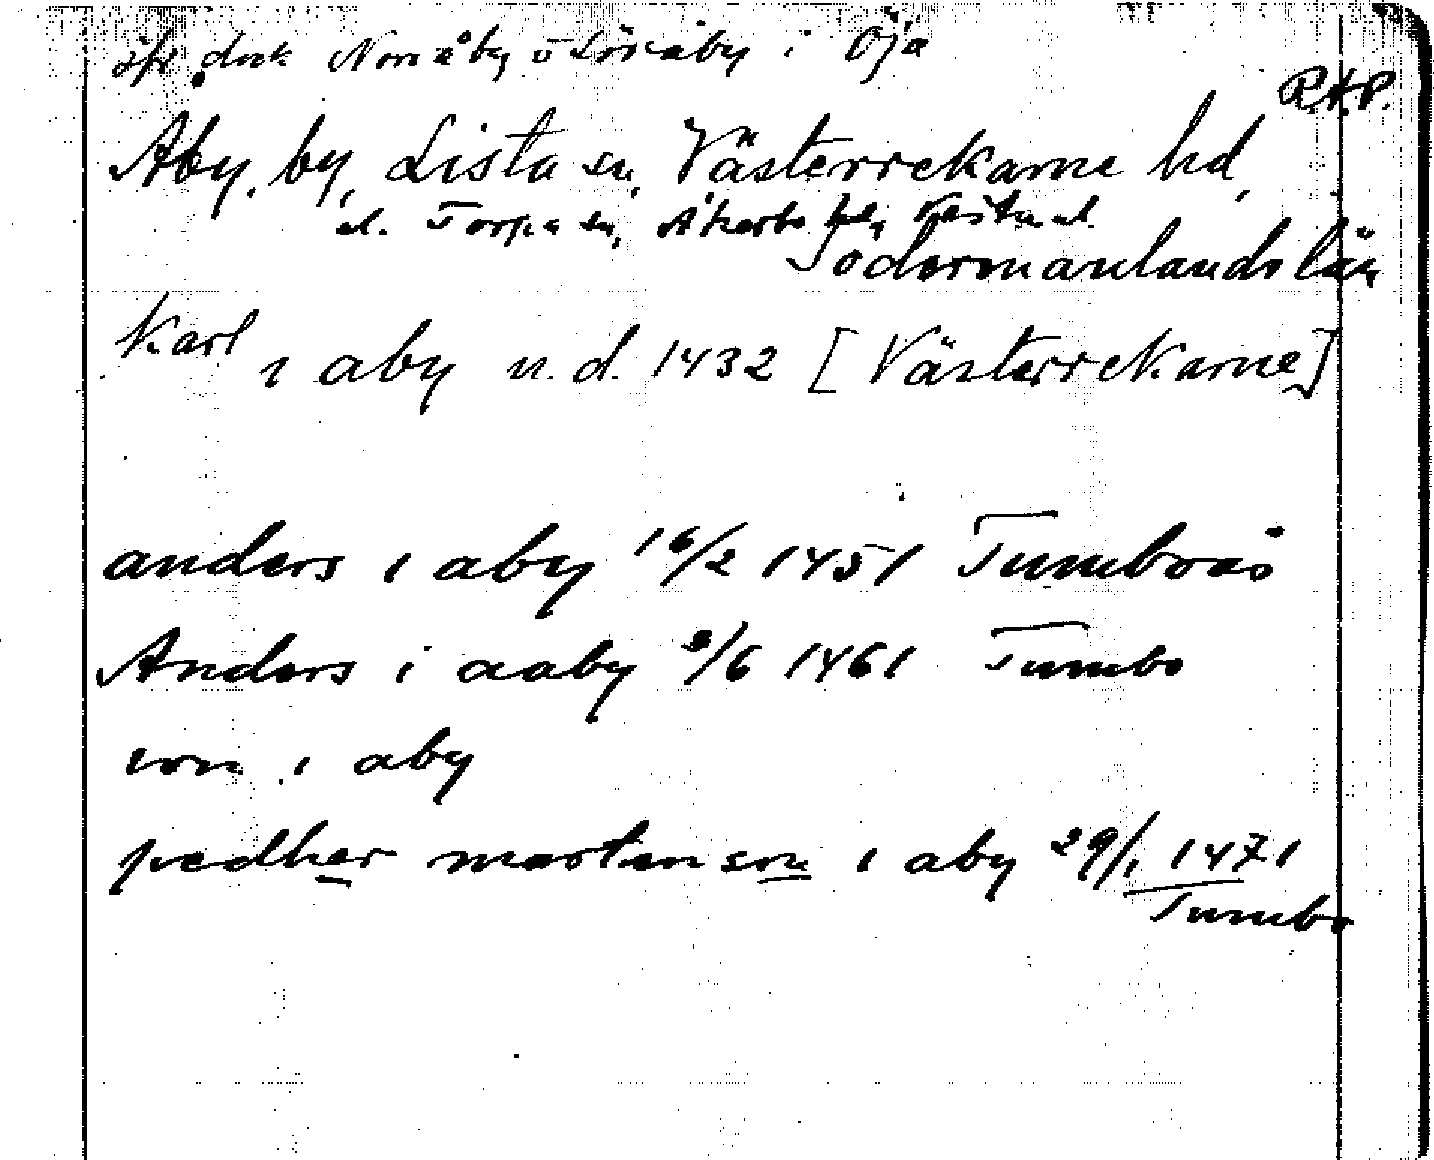 jfr dock Norråby o Sörråby i Öja
R.A.P.
Åby, by, Lista sn, Västerrekarne hd,
el. Torpa sn, Åkerbo hd, Västm.l.
Södermanlands län
Karl i aby u.d. 1432 [Västerrekarne]
anders i aby 16/2 1451 Tumboås
Anders i aaby 3/6 1461 Tumbo
son i aby
pedher martenson i aby 29/1 1471
Tumbo